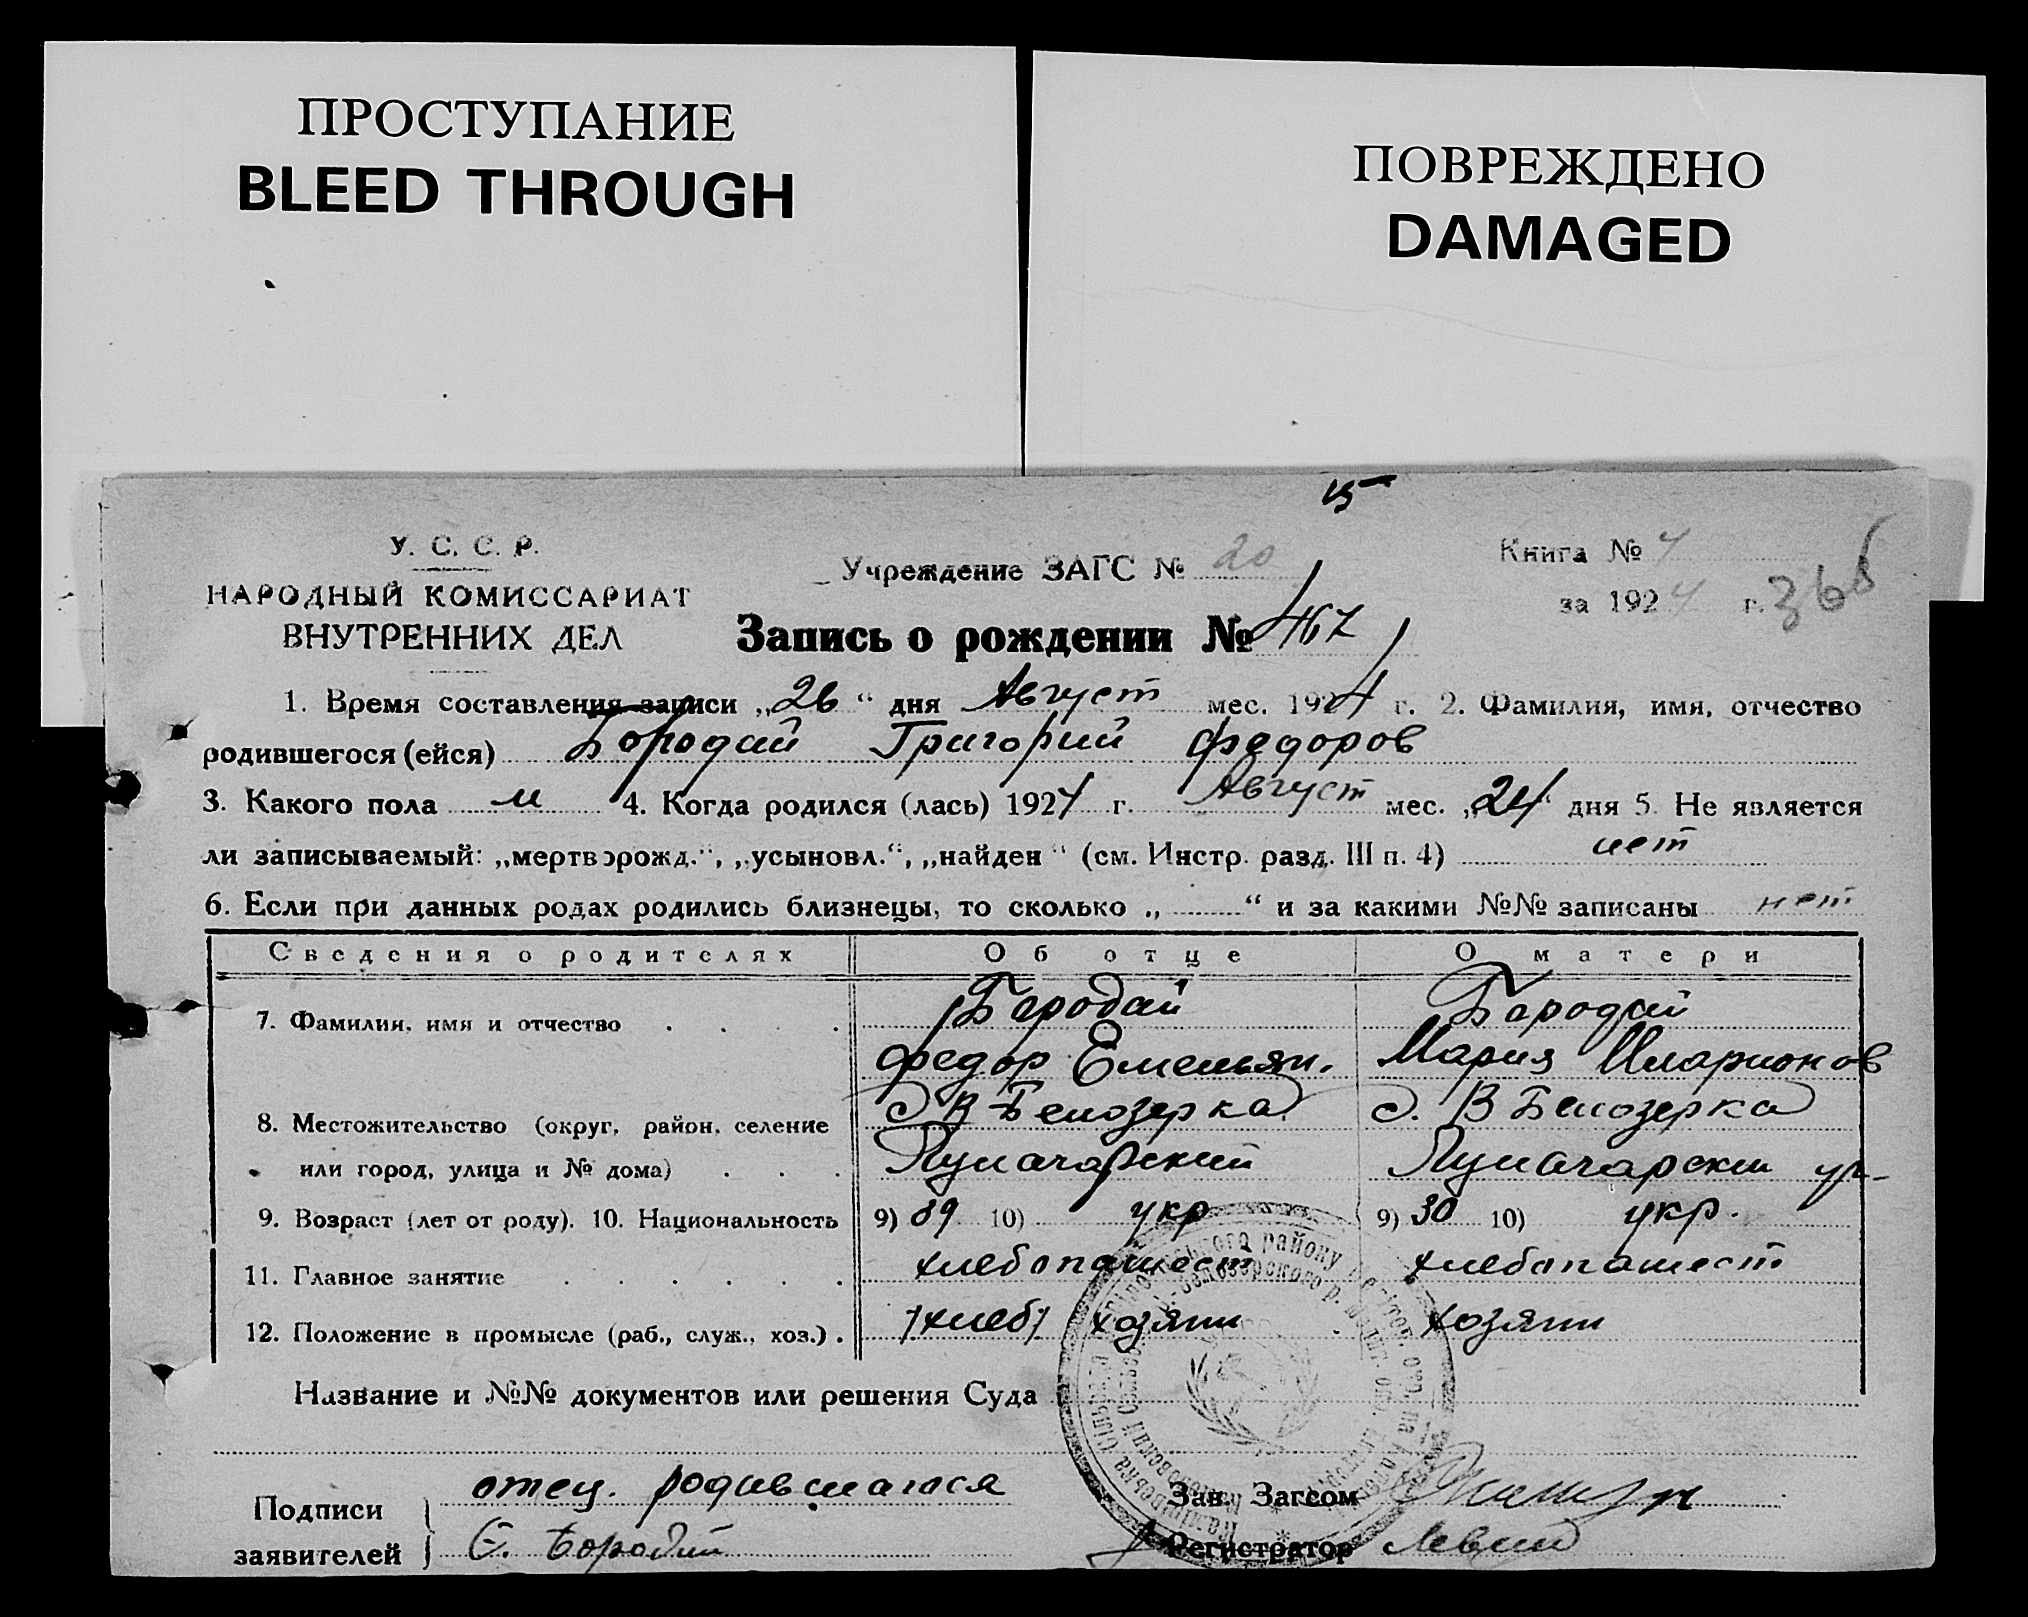 ПРОСТУПАНИЕ
BLEED THROUGH
ПОВРЕЖДЕНО
DAMAGED
15
У. С. С. Р.
НАРОДНЫЙ КОМИССАРИАТ
ВНУТРЕННИХ ДЕЛ
Учреждение ЗАГС № 20
Книга № 4
за 1924 г. 366
Запись о рождении № 467
1. Время составления записи „26“ дня Август мес. 1924 г. 2. Фамилия, имя, отчество
родившегося (ейся) Бородай Григорий Федоров
3. Какого пола м 4. Когда родился (лась) 1924 г. Август мес. „24“ дня 5. Не является
ли записываемый: „мертворожд.“, „усыновл.“, „найден“ (см. Инстр. разд. III п. 4) нет
6. Если при данных родах родились близнецы, то сколько „ “ и за какими №№ записаны нет
Сведения о родителях Об отце О матери
7. Фамилия, имя и отчество Бородай Бородай
Федор Емельян. Мария Иларионов
8. Местожительство (округ, район, селение с В Белозерка с. В Белозерка
или город, улица и № дома)
9. Возраст (лет от роду). 10. Национальность 9) 39 10) укр 9) 30 10) укр.
11. Главное занятие хлебопашест хлебопашест
12. Положение в промысле (раб., служ., хоз.) хлеб хозяин хозяин
Название и №№ документов или решения Суда
Подписи заявителей отец. родившагося
Бородай
Зав. Загсом
Регистратор